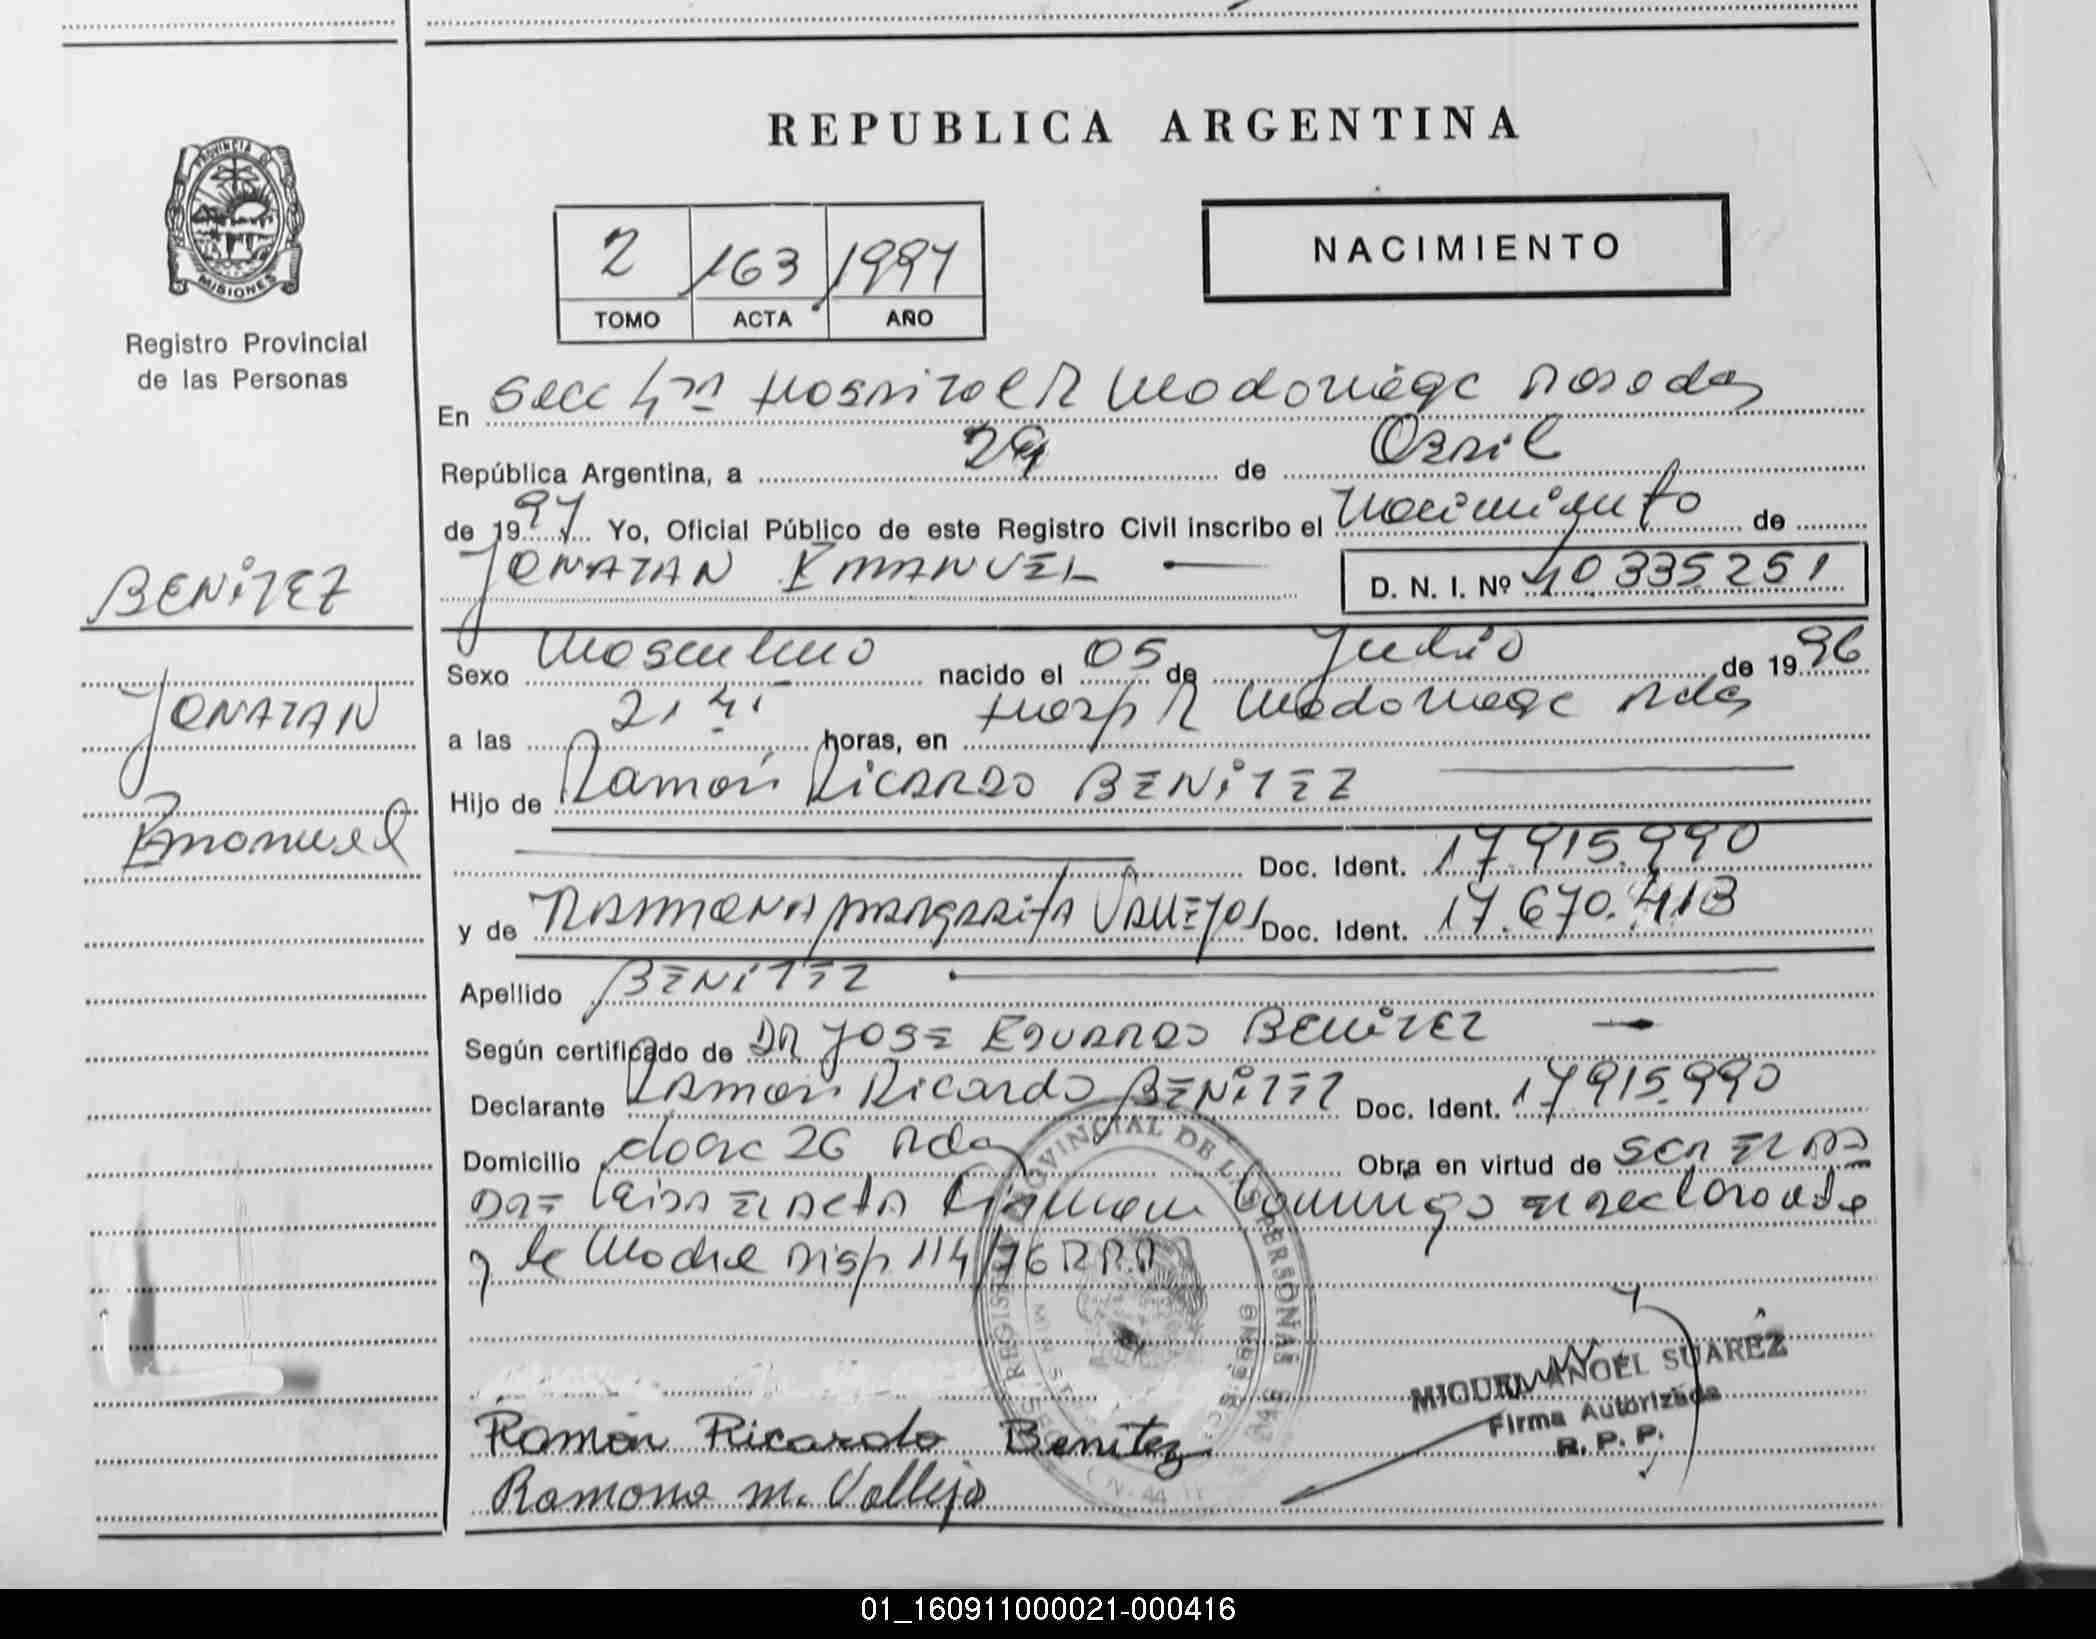 REPUBLICA ARGENTINA
PROVINCIA DE
MISIONES
Registro Provincial
de las Personas
2 163 1997
TOMO ACTA AÑO
NACIMIENTO
En Secc 4ta Hospital R Madariaga Posadas
República Argentina, a 29 de Abril
de 1997 Yo, Oficial Público de este Registro Civil inscribo el Nacimiento de
JONATAN EMANUEL D. N. I. Nº 40335251
BENITEZ
JONATAN
Emanuel
Sexo Masculino nacido el 05 de Julio de 1996
a las 21 horas, en Hosp R Madariaga Pdas
Hijo de Ramón Ricardo BENITEZ
Doc. Ident. 17.915.990
y de RAMONA MARGARITA VALLEJOS Doc. Ident. 17.670.413
Apellido BENITEZ
Según certificado de DR JOSE EDUARDO BENITEZ
Declarante Ramón Ricardo BENITEZ Doc. Ident. 17915.990
Domicilio 26 Pdas Obra en virtud de SER EL
el acta el declarante
y la Madre Disp. 114/76 R.P.P.
Ramón Ricardo Benitez
Ramona M. Vallejo
MIGUEL ANGEL SUAREZ
Firma Autorizada
R. P. P.
01_160911000021-000416